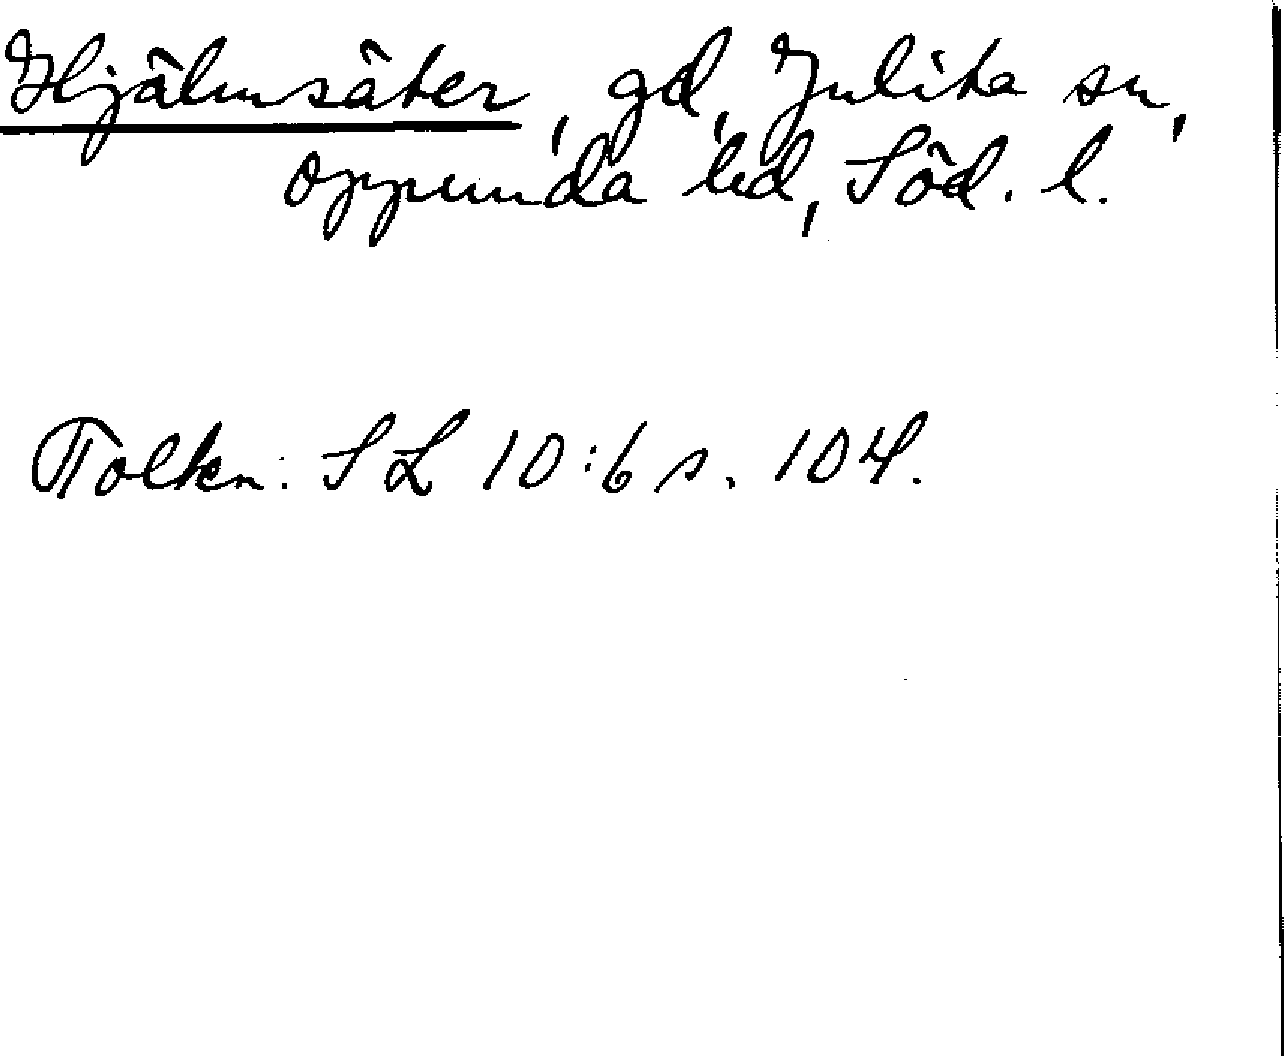 Hjälmsäter, gd, Julita sn,
Oppunda hd, Söd. l.
Tolkn: SL 10:6 s. 104.